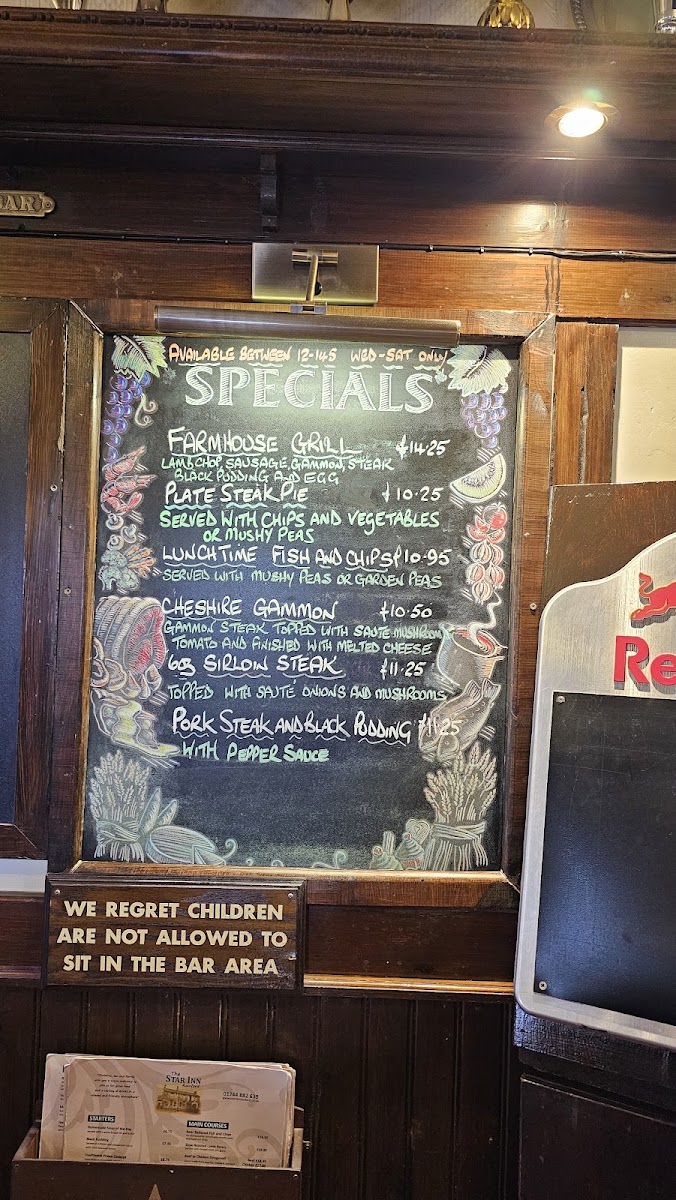 BAR
AVAILABLE BETWEEN 12-145 WED-SAT ONLY
SPECIALS
FARMHOUSE GRILL £14·25
LAMB CHOP, SAUSAGE, GAMMON, STEAK
BLACK PUDDING AND EGG
PLATE STEAK PIE £10·25
SERVED WITH CHIPS AND VEGETABLES
OR MUSHY PEAS
LUNCHTIME FISH AND CHIPS £10·95
SERVED WITH MUSHY PEAS OR GARDEN PEAS
CHESHIRE GAMMON £10·50
GAMMON STEAK TOPPED WITH SAUTE MUSHROOM
TOMATO AND FINISHED WITH MELTED CHEESE
6oz SIRLOIN STEAK £11·25
TOPPED WITH SAUTÉ ONIONS AND MUSHROOMS
PORK STEAK AND BLACK PUDDING £11·25
WITH PEPPER SAUCE
Re
WE REGRET CHILDREN
ARE NOT ALLOWED TO
SIT IN THE BAR AREA
The
STAR INN
STARTERS
MAIN COURSES
Black Pudding